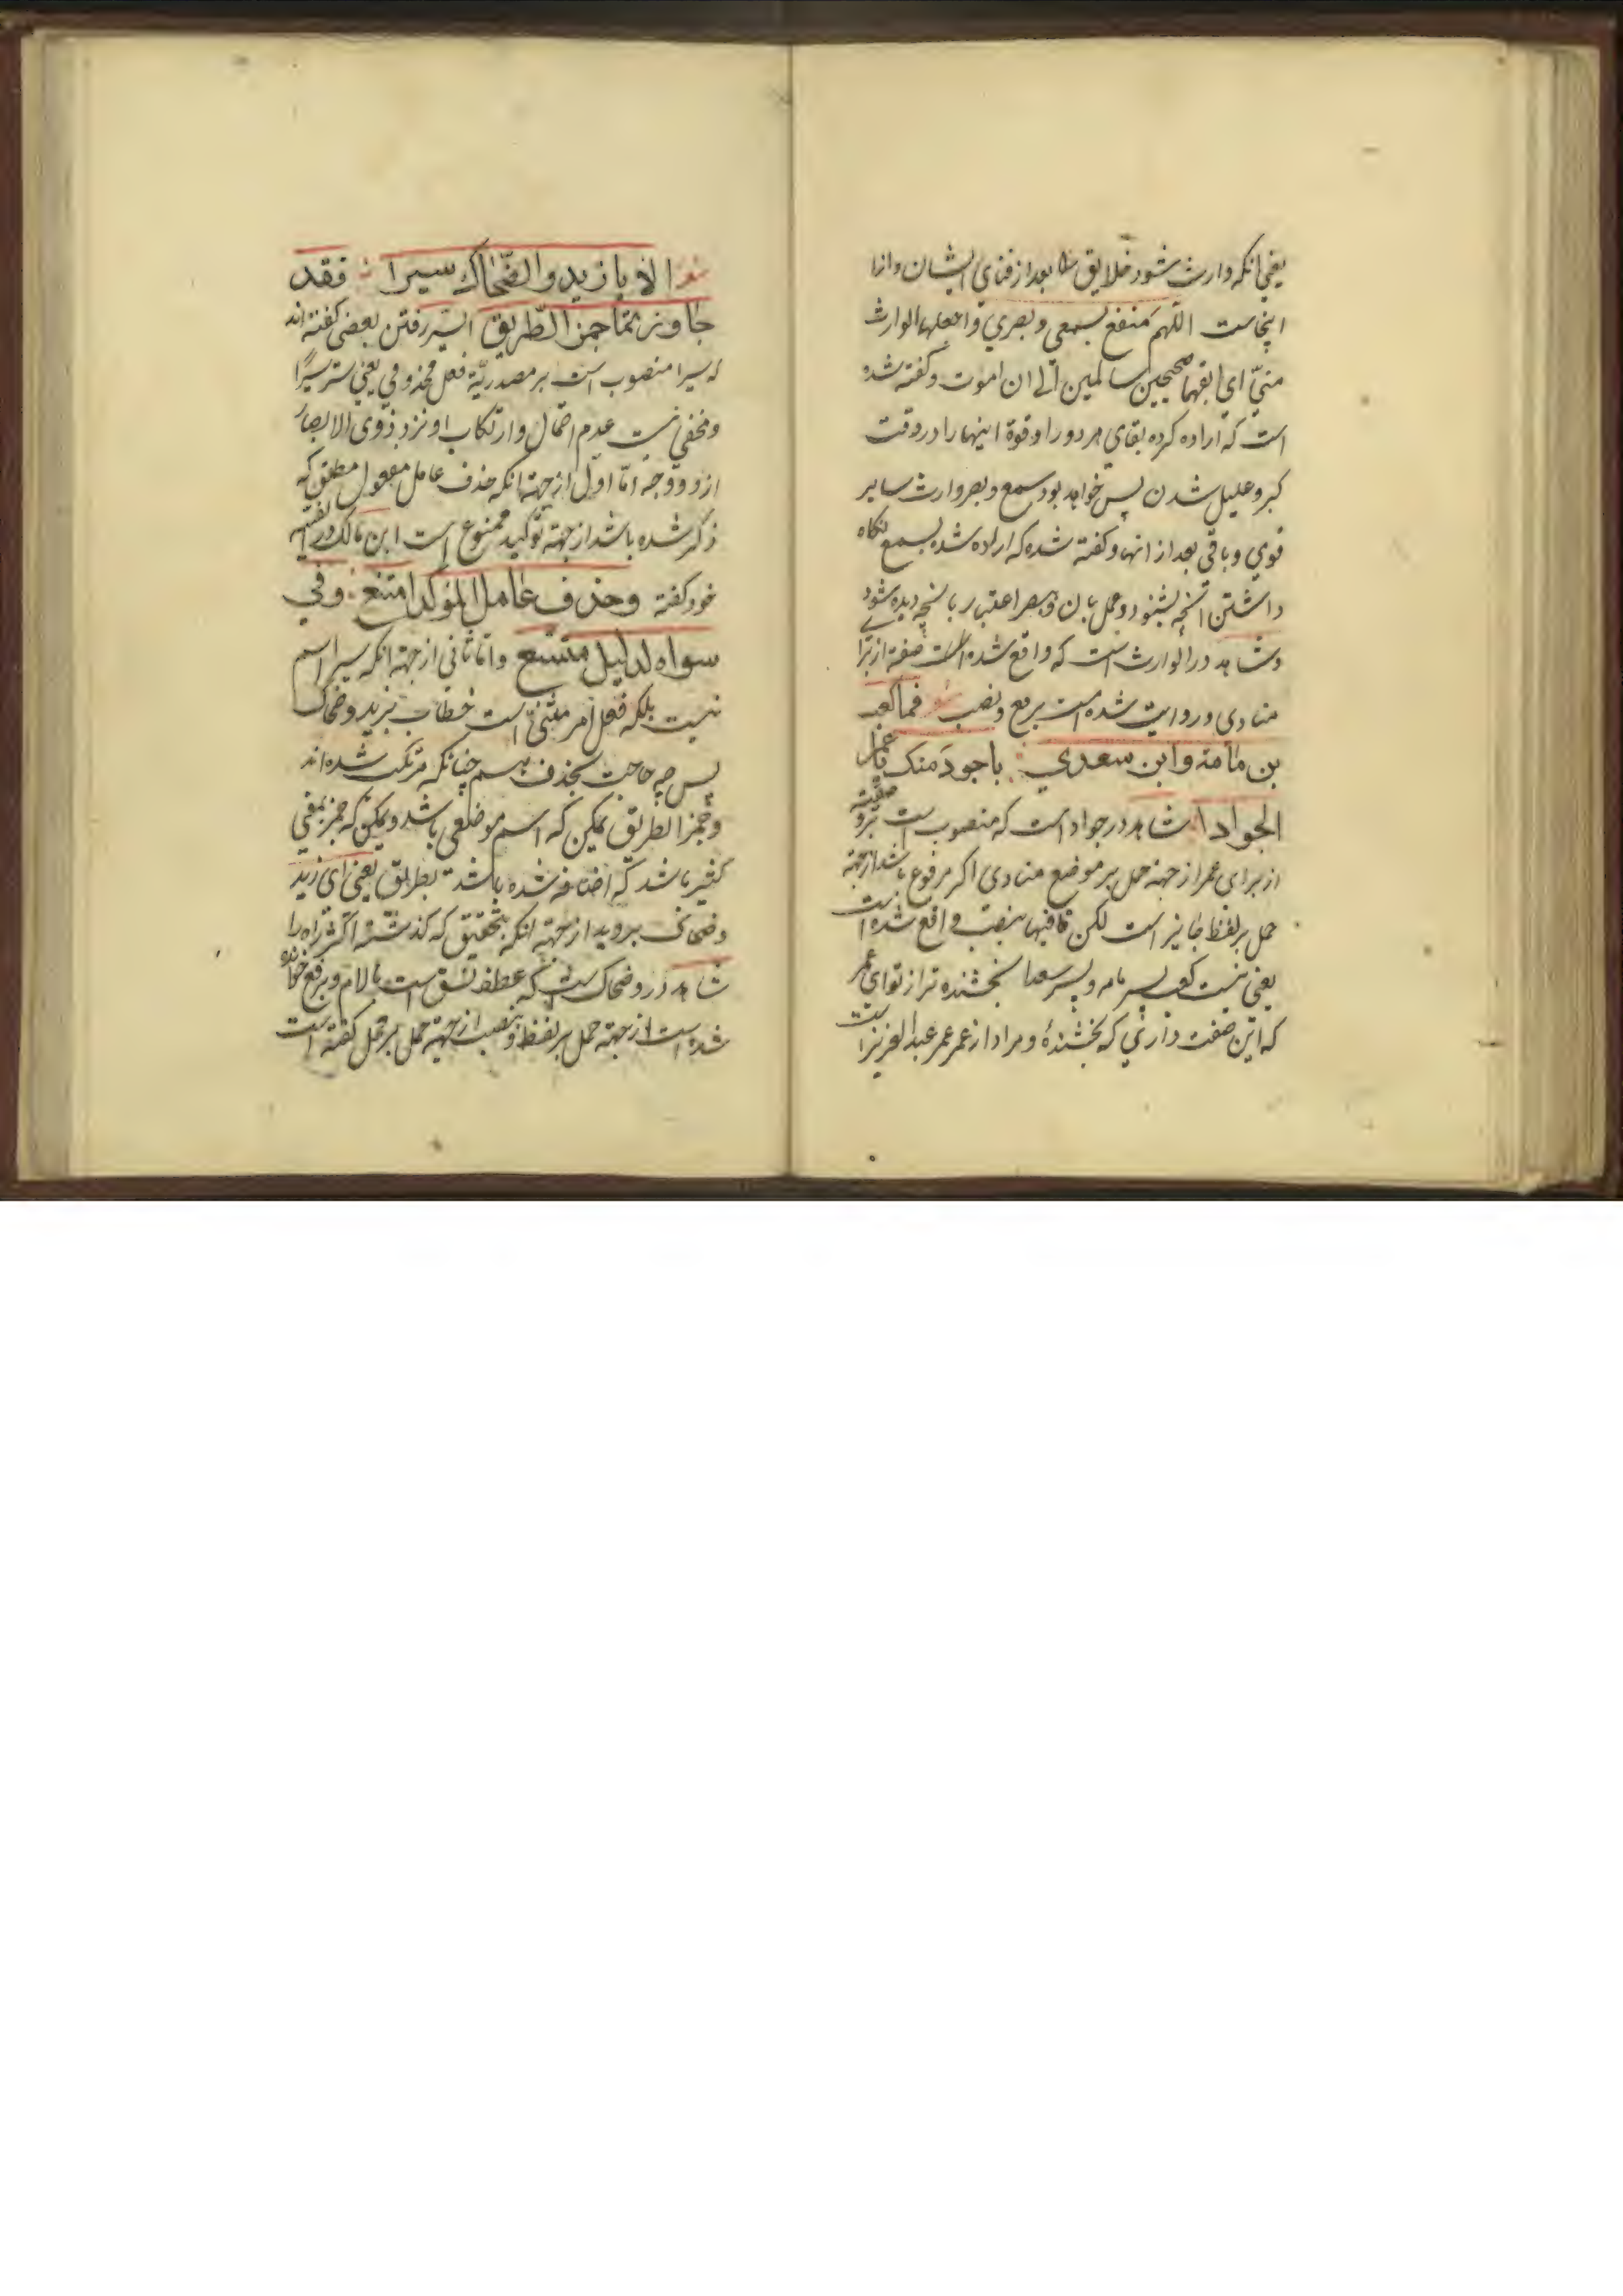 یعنی انکه وارث شود خلایق را بعد از فنای ایشان و از
اینجاست اللهم متع بسمعی وبصري واجعلهما الوارث
منّي اي ابقهما صحیحین سالمین الی ان اموت وکفته شده
است که اراده کرده بقای هر دو را وقوة اینها را در وقت
کبر و علیل شدن پس خواهد بود سمع و بصر وارث سایر
قوي وباقی بعد از انها وکفته شده که اراده شده بسمع نکاه
داشتن انچه بشنود وعمل بان وبصر اعتبار بانچه دیده شود
وشاهد در الوارث است که واقع شده است صفة از برا
منادی وروایت شده است برفع ونصب شعر فما کعب
بن مامة وابن سعدي باجود منك یا عمر
الجوادا شاهد در جواد است که منصوب است
از برای عمر از جهة حمل بر موضع منادی اکر مرفوع باشد از جهة
حمل بر لفظ جایز است لکن قافیها بنصب واقع شده است
یعنی نیست کعب پسر مامه وپسر سعدا بخشنده تر از تو ای عمر
که این صفت داري که بخشندۀ ومراد از عمر عمر عبد العزیز است
شعر الا یا زید والضّحاك سیرا فقد
جاوزتما خمر الطّریق السّیر رفتن بعضی کفته اند
که سیرا منصوب است بر مصدریّة فعل محذوفي یعنی سیرا
ومخفی نیست عدم احتمال وارتکاب او نزد ذوی الابصار
از دو وجه امّا اوّل از جهة انکه حذف عامل مفعول مطلق که
ذکر شده باشد از جهة توکید ممنوع است ابن مالك در الفیه
خود کفته وحذف عامل المؤکد امتنع وفي
سواه لدلیل متسع وامّا ثانی از جهة انکه سیرا اسم
نیست بلکه فعل امر مثنّی است خطاب بزید وضحاك
پس چه حاجت بحذف چنانکه مرتکب شده اند
وخمر الطریق یمکن که اسم موضعی باشد ویمکن که خمر بمعنی
کثیر باشد که اضافه شده باشد بطریق یعنی ای زید
وضحاك بروید از جهة انکه بتحقیق که کذشتید اکثر راه را
شاهد در وضحاك است که عطف نسق است با لام وبرفع خوانده
شده است از جهة حمل بر لفظ وبنصب از جهة حمل بر محل کفته است